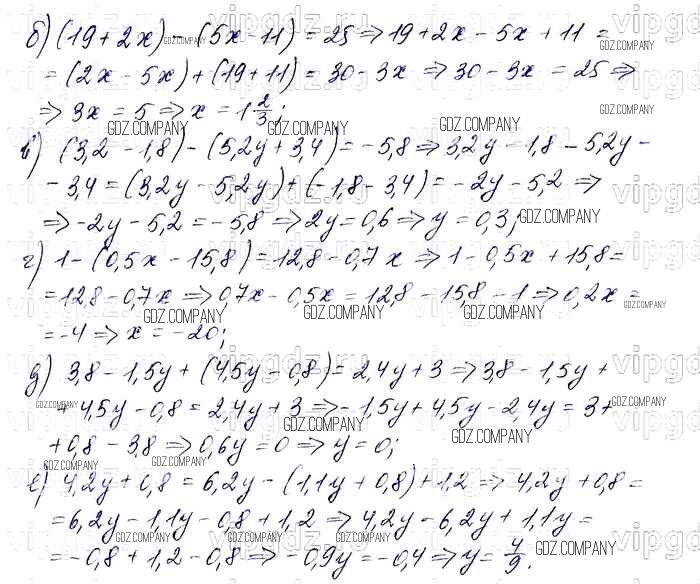 б) (19 + 2x) - (5x - 11) = 25 ⇒ 19 + 2x - 5x + 11 =
= (2x - 5x) + (19 + 11) = 30 - 3x ⇒ 30 - 3x = 25 ⇒
⇒ 3x = 5 ⇒ x = 1 2/3;
в) (3,2 - 1,8) - (5,2y + 3,4) = -5,8 ⇒ 3,2y - 1,8 - 5,2y -
- 3,4 = (3,2y - 5,2y) + (-1,8 - 3,4) = -2y - 5,2 ⇒
⇒ -2y - 5,2 = -5,8 ⇒ 2y = 0,6 ⇒ y = 0,3;
г) 1 - (0,5x - 15,8) = 12,8 - 0,7x ⇒ 1 - 0,5x + 15,8 =
= 12,8 - 0,7x ⇒ 0,7x - 0,5x = 12,8 - 15,8 - 1 ⇒ 0,2x =
= -4 ⇒ x = -20;
д) 3,8 - 1,5y + (4,5y - 0,8) = 2,4y + 3 ⇒ 3,8 - 1,5y +
+ 4,5y - 0,8 = 2,4y + 3 ⇒ -1,5y + 4,5y - 2,4y = 3 +
+ 0,8 - 3,8 ⇒ 0,6y = 0 ⇒ y = 0;
е) 4,2y + 0,8 = 6,2y - (1,1y + 0,8) + 1,2 ⇒ 4,2y + 0,8 =
= 6,2y - 1,1y - 0,8 + 1,2 ⇒ 4,2y - 6,2y + 1,1y =
= -0,8 + 1,2 - 0,8 ⇒ -0,9y = -0,4 ⇒ y = 4/9.
GDZ.COMPANY
vipgdz.ru